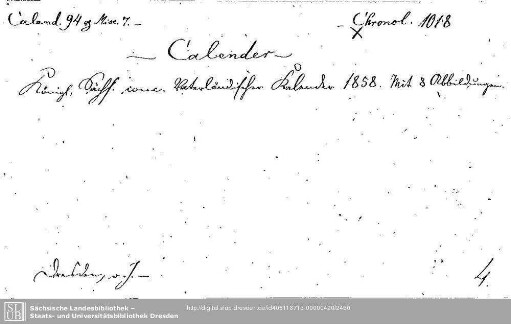 Caland. 94 g Misc. 7. — Chronol. 1018
X
— Calender —
Königl. Sächs. conc. Vaterländischer Kalender 1858. Mit 8 Abbildungen.
Dresden, o. J. — 4.
SLUB
Sächsische Landesbibliothek –
Staats- und Universitätsbibliothek Dresden